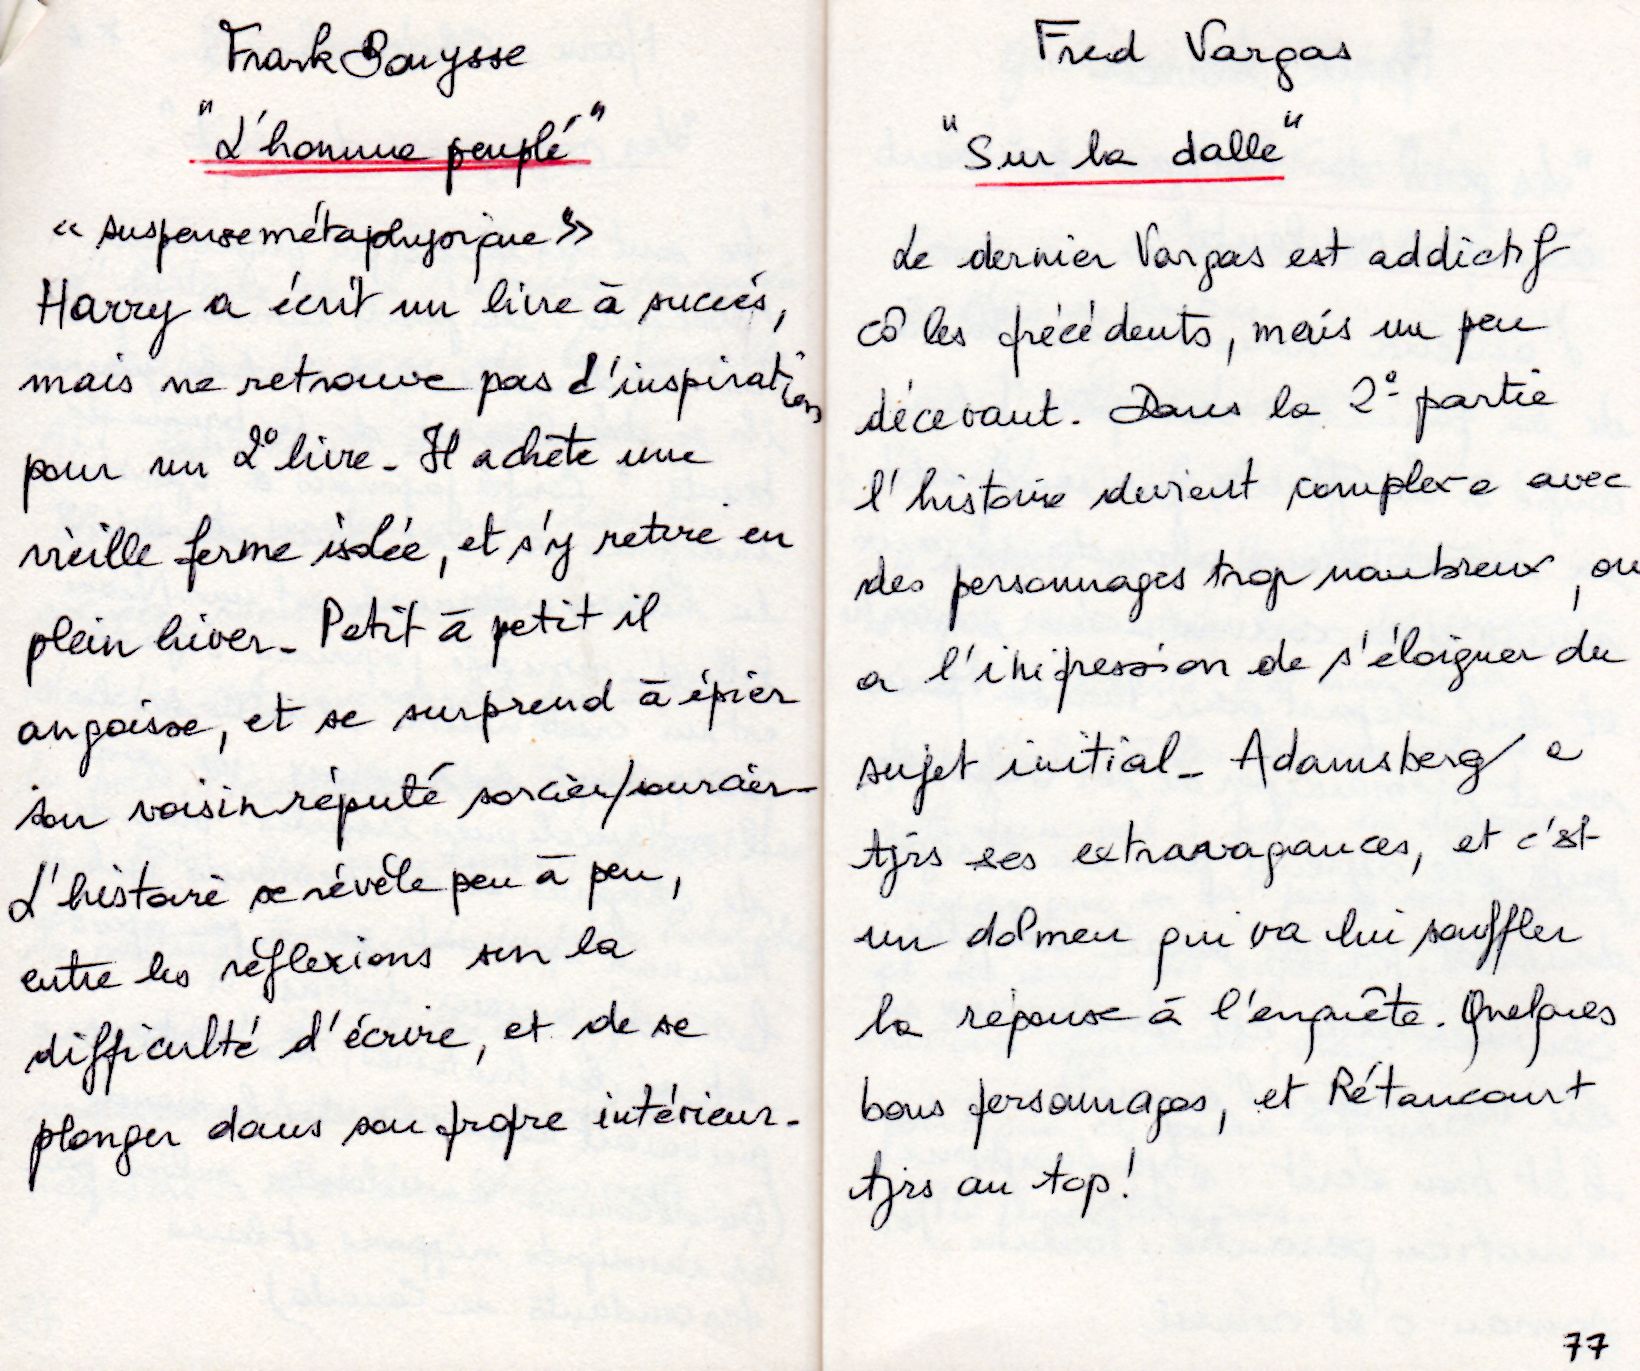 Frank Bouysse
"L'homme peuplé"
« suspense métaphysique »
Harry a écrit un livre à succés,
mais ne retrouve pas d'inspiration
pour un 2° livre. Il achète une
vieille ferme isolée, et s'y retire en
plein hiver. Petit à petit il
angoisse, et se surprend à épier
son voisin réputé sorcier/sourcier.
L'histoire se révèle peu à peu,
entre les réflexions sur la
difficulté d'écrire, et de se
plonger dans son propre intérieur.
Fred Vargas
"Sur la dalle"
Le dernier Vargas est addictif
cô les précédents, mais un peu
décevant. Dans la 2° partie
l'histoire devient complexe avec
des personnages trop nombreux, on
a l'impression de s'éloigner du
sujet initial. Adamsberg a
tjrs ses extravagances, et c'est
un dolmen qui va lui souffler
la réponse à l'enquête. Quelques
bons personnages, et Rétancourt
tjrs au top!
77